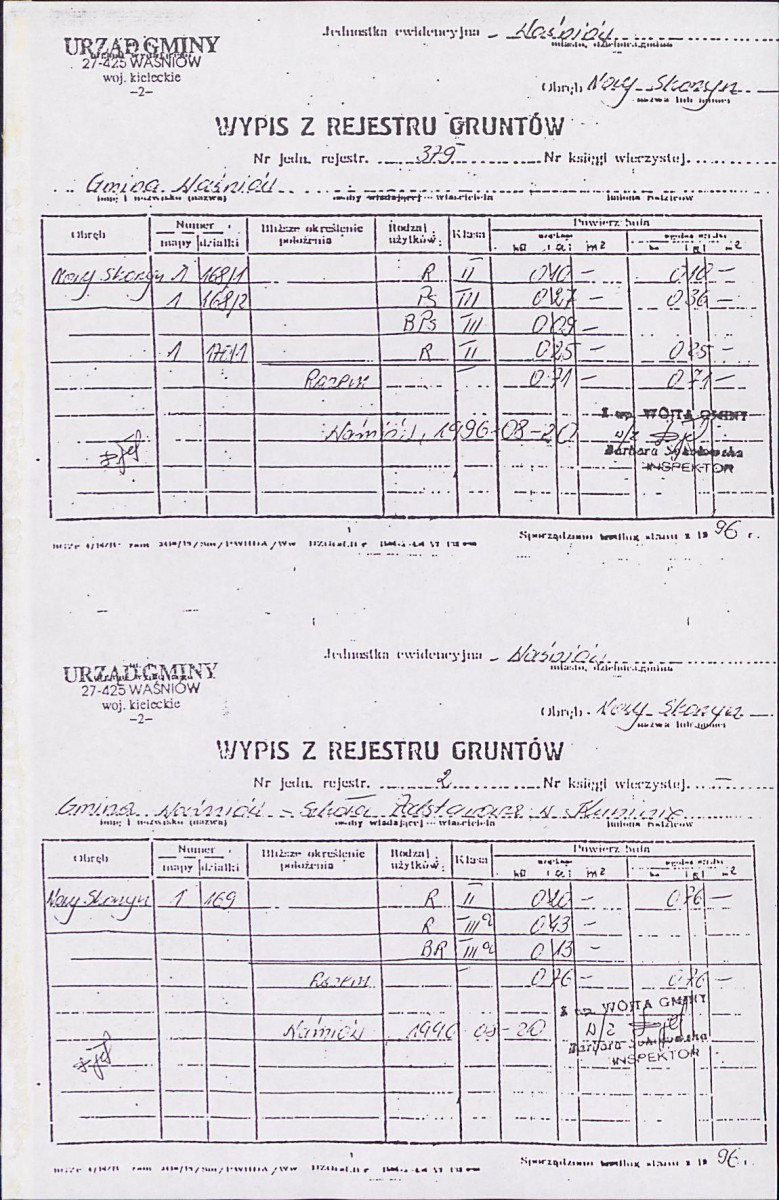 Jednostka ewidencyjna - Waśniów
miasto, dzielnica, gmina
URZĄD GMINY
27-425 WAŚNIÓW
woj. kieleckie
-2-
Obręb Nowy Skoszyn
nazwa lub numer
WYPIS Z REJESTRU GRUNTÓW
Nr jedn. rejestr. 379 Nr księgi wieczystej
Gmina Waśniów
imię i nazwisko (nazwa) osoby władającej — właściciela imiona rodziców
Obręb Numer Bliższe określenie położenia Rodzaj użytków Klasa Powierzchnia
mapy działki ha a m2 ha a m2
Nowy Skoszyn 1 168/1 R II 0 10 - 0 10 -
1 168/2 Ps III 0 27 - 0 36 -
BPs III 0 09 -
1 R II 0 25 - 0 25 -
Razem 0 71 - 0 71 -
Z up. WÓJTA GMINY
Waśniów, 1996-08-20 w/z
Barbara Sokołowska
INSPEKTOR
Sporządzono według stanu z 19 96 r.
Jednostka ewidencyjna - Waśniów
miasto, dzielnica, gmina
URZĄD GMINY
27-425 WAŚNIÓW
woj. kieleckie
-2-
Obręb - Nowy Skoszyn
nazwa lub numer
WYPIS Z REJESTRU GRUNTÓW
Nr jedn. rejestr. 2 Nr księgi wieczystej —
Gmina Waśniów - Szkoła Podstawowa w
imię i nazwisko (nazwa) osoby władającej — właściciela imiona rodziców
Obręb Numer Bliższe określenie położenia Rodzaj użytków Klasa Powierzchnia
mapy działki ha a m2 ha a m2
Nowy Skoszyn 1 169 R II 0 20 - 0 76 -
R III a 0 43 -
BR III a 0 13 -
Razem 0 76 - 0 76 -
Z up. WÓJTA GMINY
Waśniów 1996-08-20 w/z
Barbara Sokołowska
INSPEKTOR
Sporządzono według stanu z 19 96 r.